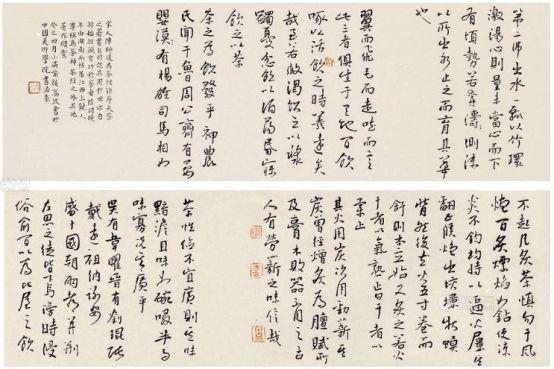 第一沸出水一瓢以竹環
激湯心則量末當心而下
有頃勢若奔濤濺沫
以所出水止之而育其華
也
翼而飛毛而走呿而言
此三者俱生于天地間飲
啄以活飲之時義遠矣
哉至若救渴飲之以漿
蠲憂忿飲之以酒蕩昏寐
飲之以茶
茶之為飲發乎神農
氏聞于魯周公齊有晏
嬰漢有楊雄司馬相如
宋人陳師道為茶經作序夫茶
之著書自羽始其用於世亦
自羽始羽誠有功於茶者也
中國美術學院書法系
不起凡炙茶慎勿于風
燼間炙熛焰如鑽使涼
炎不鈞持以逼火屢其
翻正候炮出培塿狀蟆
背然後去火五寸卷而
舒則本其始又炙之若火
干者以氣熟止日干者以
柔止
其火用炭次用勁薪其
炭曾經燔炙為膻膩所
及膏木敗器不用之古
人有勞薪之味信哉
茶性儉不宜廣則其味
黯澹且如一碗啜半而
味寡況其廣乎
吳有韋曜晉有劉琨張
載遠祖納謝安
盛于國朝兩都并荊
左思之徒皆飲焉滂時浸
俗俞間以為比屋之飲